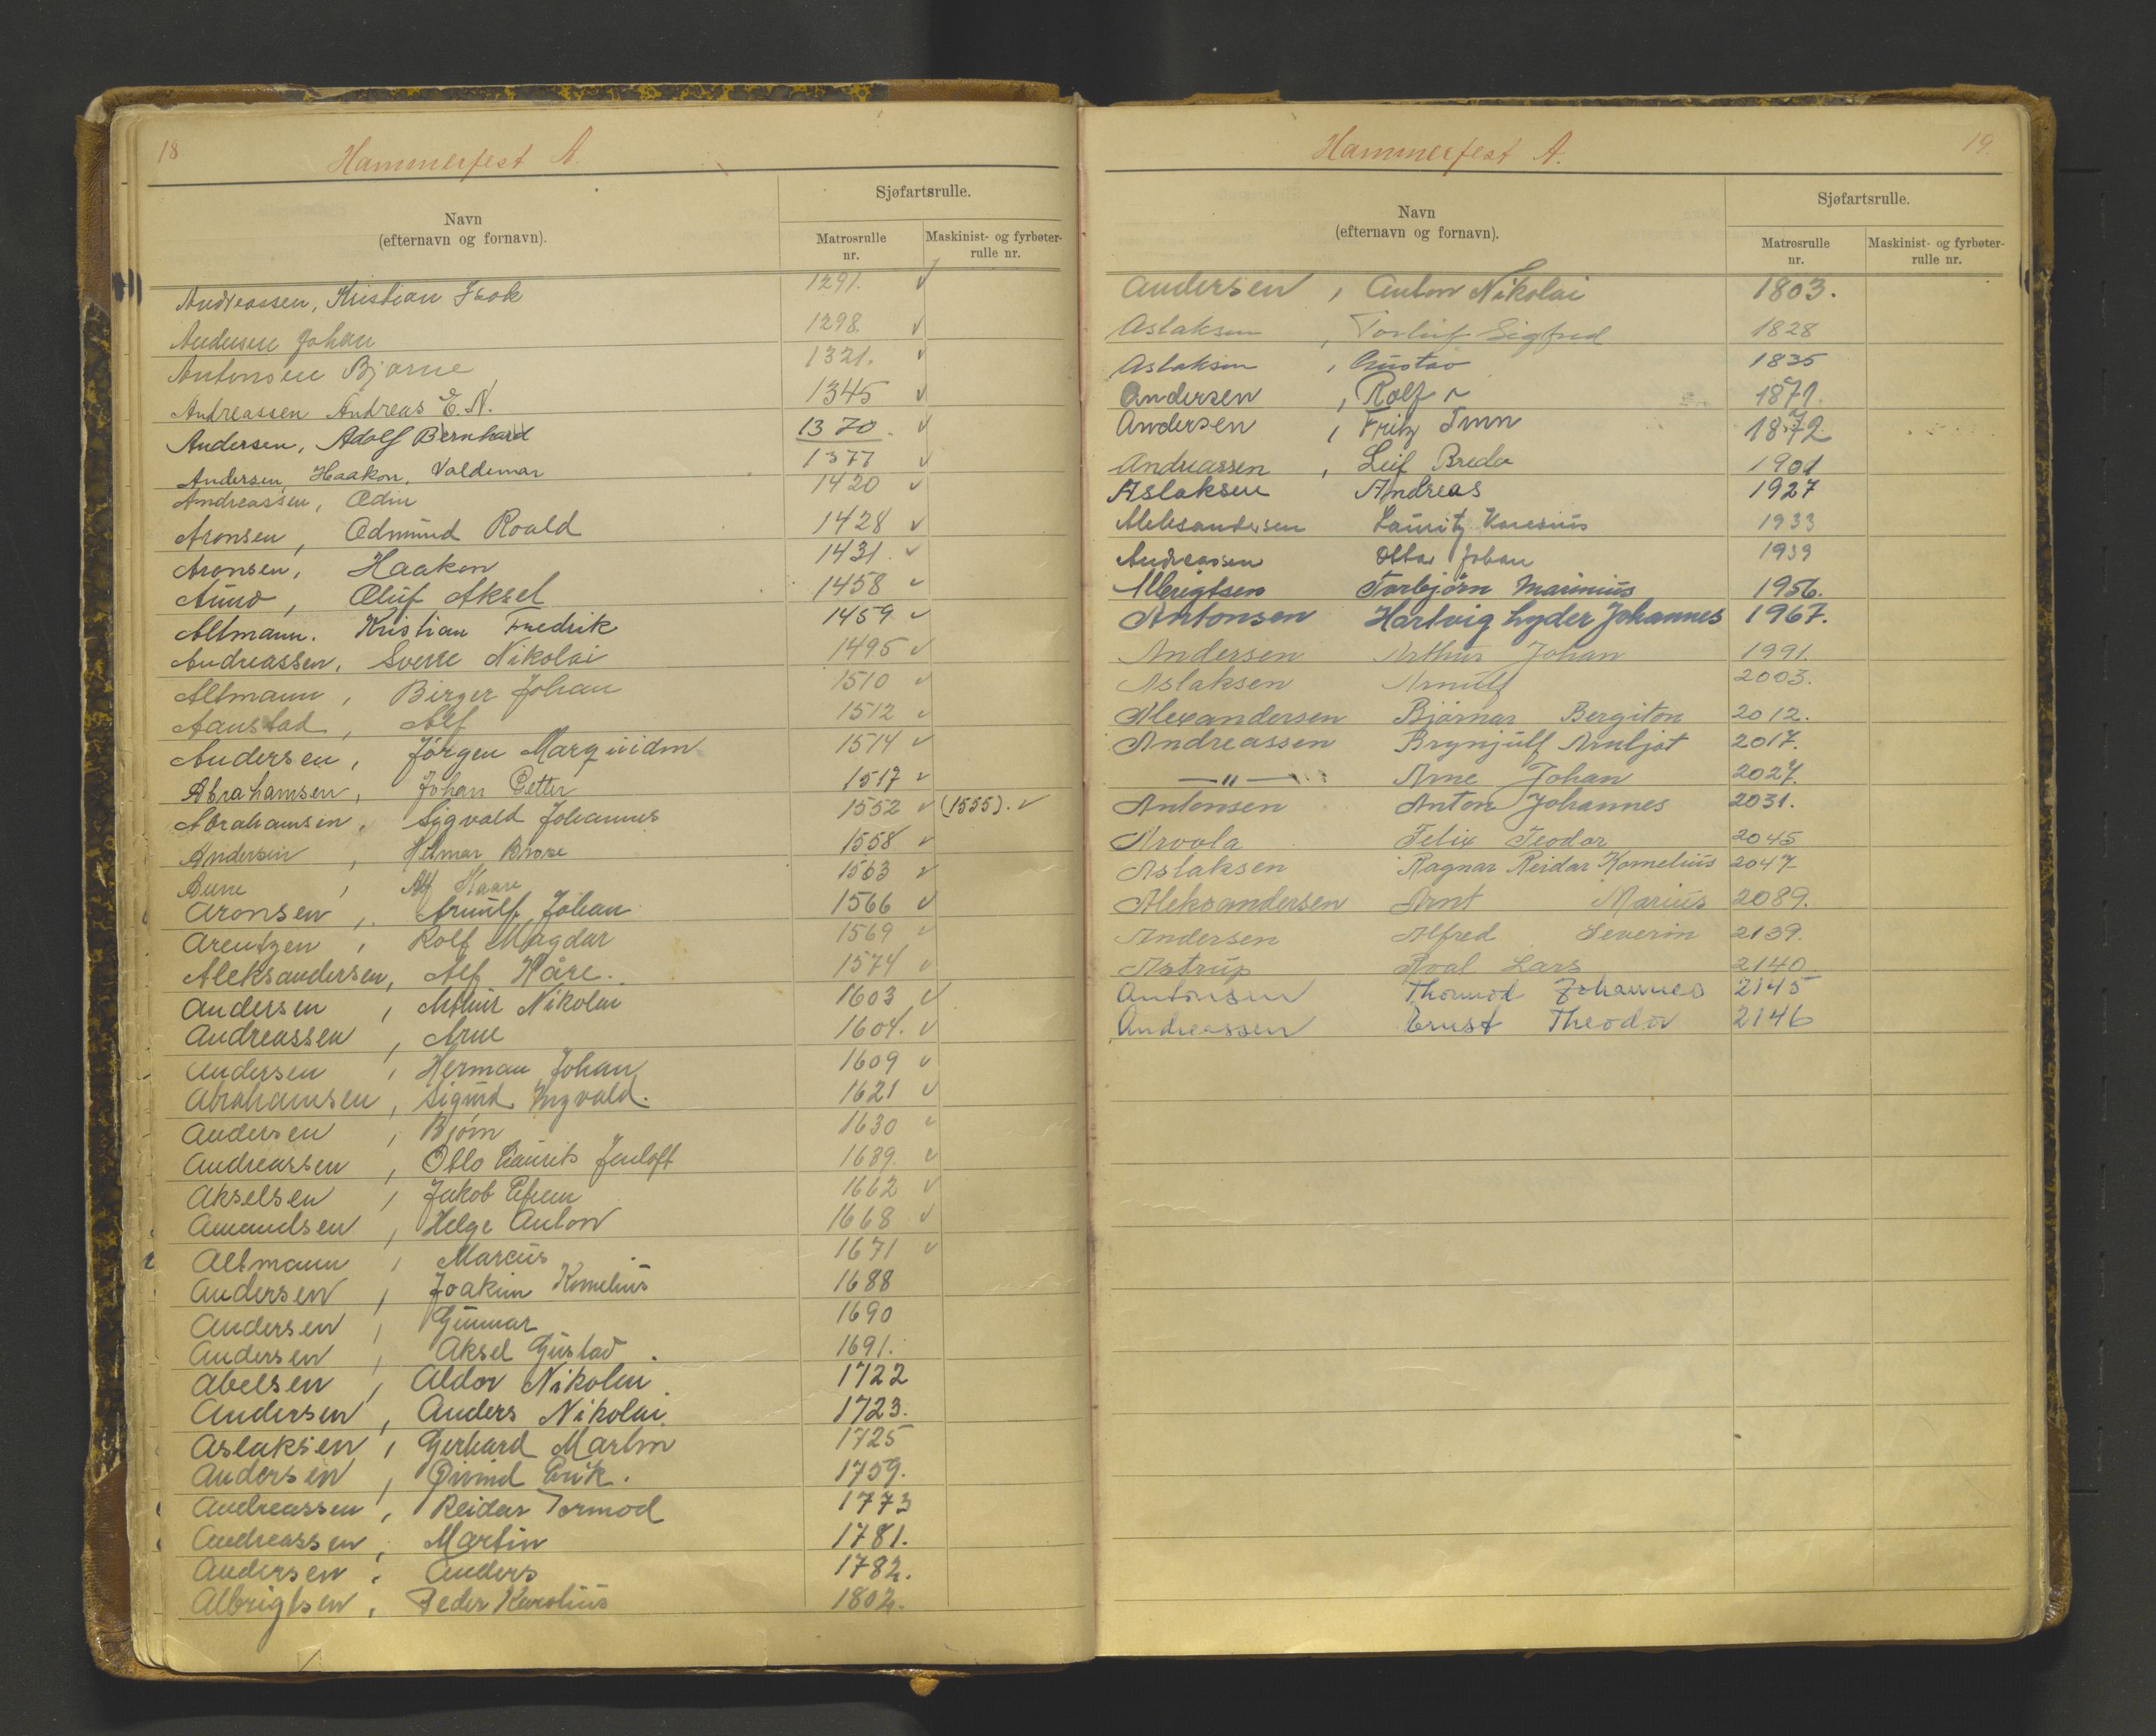 18
Hammerfest A.
Navn
(efternavn og fornavn).
Sjøfartsrulle.
Matrosrulle
nr.
Maskinist- og fyrbøter-
rulle nr.
Andreassen, Kristian 1291. ✓
Andersen Johan 1298. ✓
Antonsen Bjarne 1321. ✓
Andreassen Andreas E. N. 1345 ✓
Andersen, Adolf Bernhard 1370. ✓
Andersen, Haakon, Valdemar 1377 ✓
Andreassen, Odin 1420 ✓
Aronsen, Edmund Roald 1428 ✓
Aronsen, Haakon 1431. ✓
Oluf Aksel 1458 ✓
Altmann. Kristian Fredrik 1459 ✓
Andreassen, Sverre Nikolai 1495 ✓
Altmann, Birger Johan 1510 ✓
Aanstad, Alf 1512 ✓
Andersen, Jørgen 1514 ✓
Abrahamsen, Johan Petter 1517 ✓
Abrahamsen, Sigvald Johannes 1552 ✓ (1555). ✓
Andersen, Hilmar 1558 ✓
Aune, Alf Kaare 1563 ✓
Aronsen, Arnulf Johan 1566 ✓
Arentzen, Rolf Magdar 1569 ✓
Aleksandersen, Alf Kåre. 1574 ✓
Andersen, Arthur Nikolai 1603 ✓
Andreassen, Arne 1604. ✓
Andersen, Herman Johan 1609 ✓
Abrahamsen, Sigurd Ingvald. 1621 ✓
Andersen, Bjørn 1630 ✓
Andreassen, Otto Laurits Jentoft 1639. ✓
Akselsen, Jakob 1662 ✓
Amundsen, Helge Anton 1668 ✓
Altmann, Marcus 1671 ✓
Andersen, Joakim Kornelius 1688
Andersen, Gunnar 1690
Andersen, Aksel Gustav 1691.
Abelsen, Aldor Nikolai 1722
Andersen, Anders Nikolai 1723.
Aslaksen, Gerhard Martin 1725
Andersen, Øivind Erik. 1759.
Andreassen, Reidar Tormod 1773
Andreassen, Martin 1781.
Andersen, Anders 1782.
Albrigtsen, Peder Karolius 1802.
19.
Hammerfest A.
Navn
(efternavn og fornavn).
Sjøfartsrulle.
Matrosrulle
nr.
Maskinist- og fyrbøter-
rulle nr.
Andersen, Anton Nikolai 1803.
Aslaksen, Torleif Sigfred 1828
Aslaksen, Gustav 1835
Andersen, Rolf 1871.
Andersen, Fritz 1872.
Andreassen, Leif Breda 1901
Aslaksen Andreas 1927
Aleksandersen Lauritz 1933
Andreassen Johan 1939
Albrigtsen Torbjörn Marinius 1956.
Antonsen Hartvig Lyder Johannes 1967.
Andersen Arthur Johan 1991.
Aslaksen Arnulf 2003.
Alexandersen Bjårnar Bergiton 2012.
Andreassen Brynjulf Arnljot 2017.
—"— Arne Johan 2027.
Antonsen Anton Johannes 2031.
Arvola Felix Teodor 2045
Aslaksen Ragnar Reidar Kornelius 2047
Aleksandersen Arnt Marius 2089.
Andersen Alfred Severin 2139.
Astrup Roal Lars 2140
Antonsen Thormod Johannes 2145
Andreassen Ernst Theodor 2146